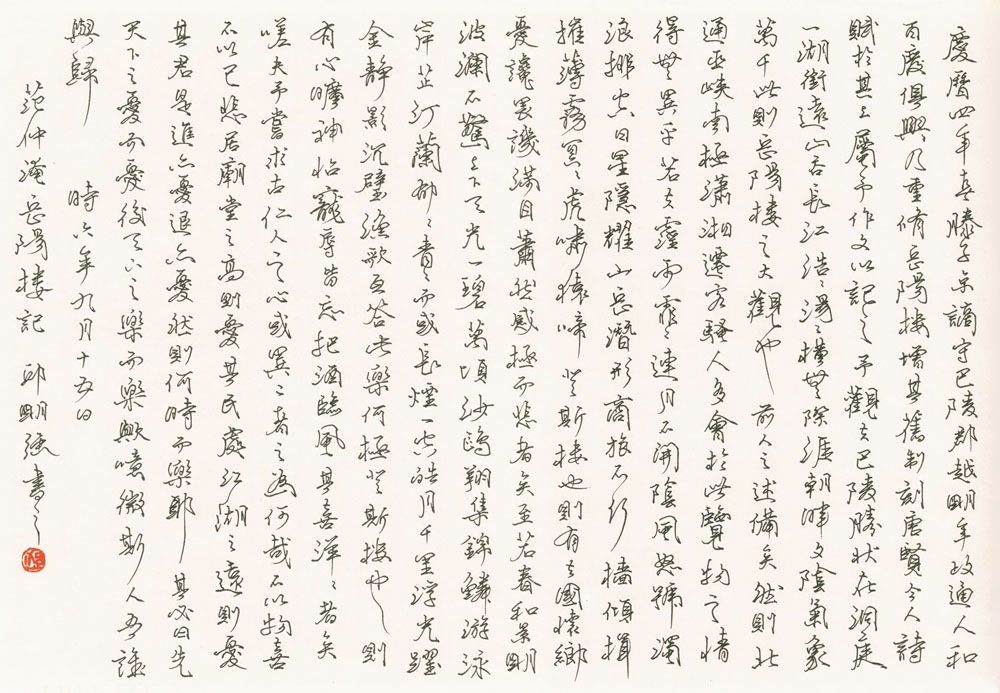 慶曆四年春滕子京謫守巴陵郡越明年政通人和
百廢俱興乃重脩岳陽樓增其舊制刻唐賢今人詩
賦於其上屬予作文以記之予觀夫巴陵勝狀在洞庭
一湖銜遠山吞長江浩浩湯湯橫無際涯朝暉夕陰氣象
萬千此則岳陽樓之大觀也前人之述備矣然則北
通巫峽南極瀟湘遷客騷人多會於此覽物之情
得無異乎若夫霪雨霏霏連月不開陰風怒號濁
浪排空日星隱耀山岳潛形商旅不行檣傾楫
摧薄霧冥冥虎嘯猿啼登斯樓也則有去國懷鄉
憂讒畏譏滿目蕭然感極而悲者矣至若春和景明
波瀾不驚上下天光一碧萬頃沙鷗翔集錦鱗游泳
岸芷汀蘭郁郁青青而或長煙一空皓月千里浮光躍
金靜影沉璧漁歌互答此樂何極登斯樓也則
有心曠神怡寵辱皆忘把酒臨風其喜洋洋者矣
嗟夫予嘗求古仁人之心或異二者之為何哉不以物喜
不以己悲居廟堂之高則憂其民處江湖之遠則憂
其君是進亦憂退亦憂然則何時而樂耶其必曰先
天下之憂而憂後天下之樂而樂歟噫微斯人吾誰
與歸 時六年九月十五日
范仲淹岳陽樓記 邱明強書之